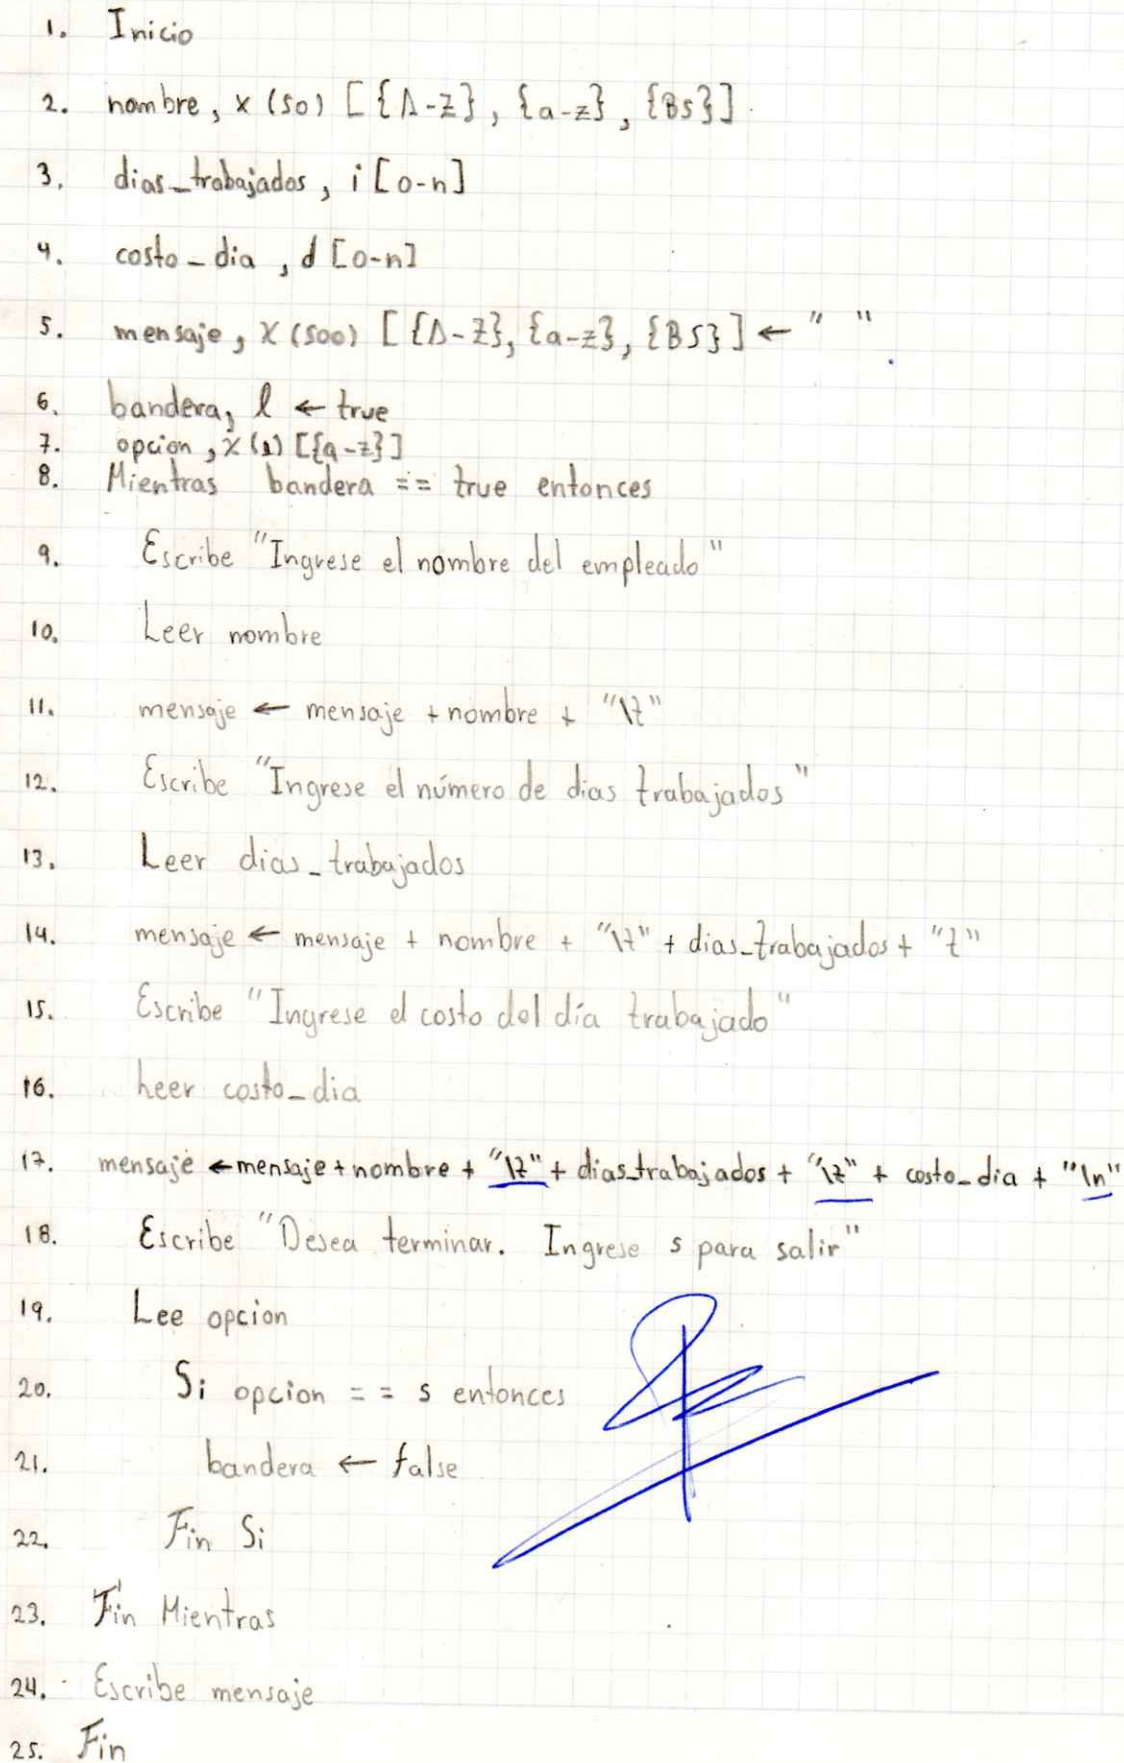 1. Inicio
2. nombre, x (50) [{A-Z}, {a-z}, {BS}]
3. dias_trabajados, i [0-n]
4. costo_dia, d [0-n]
5. mensaje, X (500) [{A-Z}, {a-z}, {BS}] ← " "
6. bandera, l ← true
7. opcion, x (1) [{a-z}]
8. Mientras bandera == true entonces
9. Escribe "Ingrese el nombre del empleado"
10. Leer nombre
11. mensaje ← mensaje + nombre + "\t"
12. Escribe "Ingrese el número de dias trabajados"
13. Leer dias_trabajados
14. mensaje ← mensaje + nombre + "\t" + dias_trabajados + "t"
15. Escribe "Ingrese el costo del día trabajado"
16. Leer costo_dia
17. mensaje ← mensaje + nombre + "\t" + dias_trabajados + "\t" + costo_dia + "\n"
18. Escribe "Desea terminar. Ingrese s para salir"
19. Lee opcion
20. Si opcion == s entonces
21. bandera ← false
22. Fin Si
23. Fin Mientras
24. Escribe mensaje
25. Fin